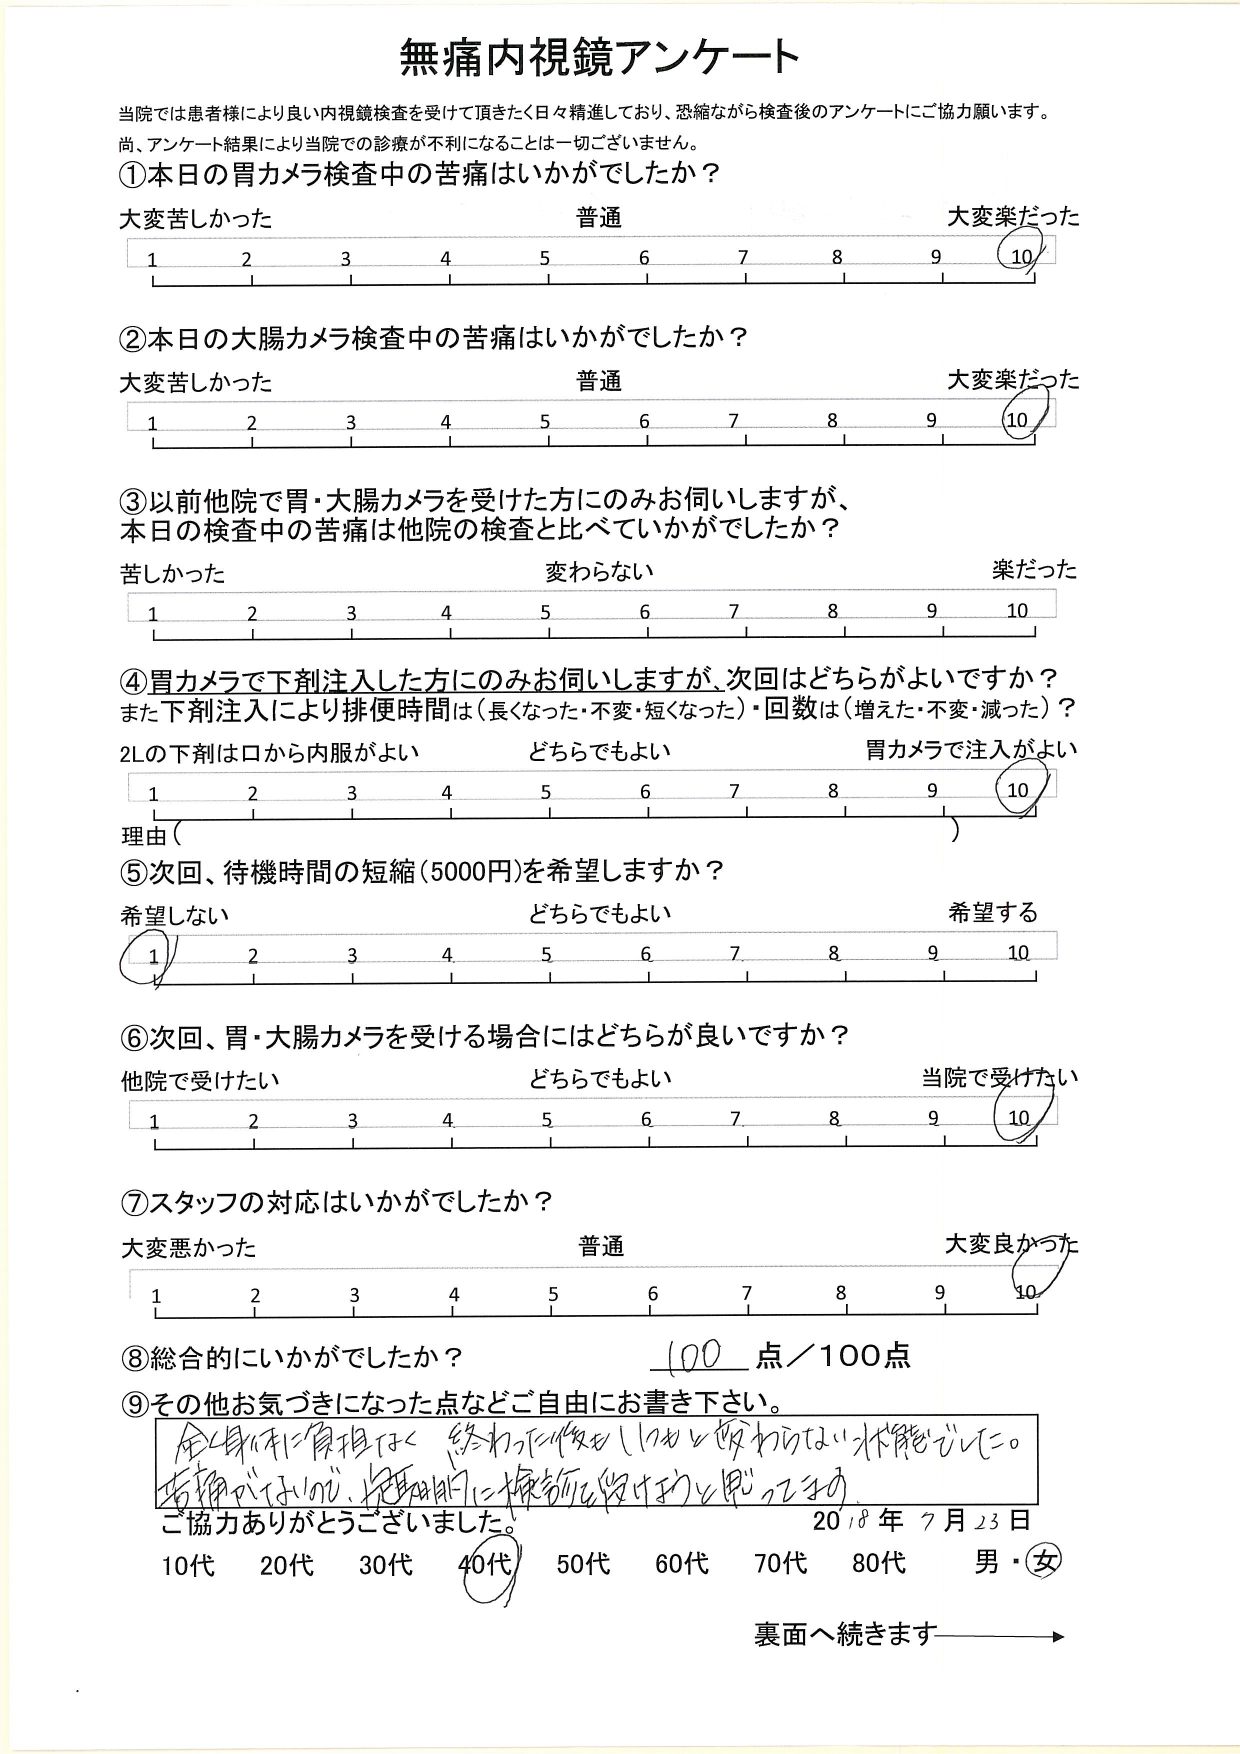 無痛内視鏡アンケート
当院では患者様により良い内視鏡検査を受けて頂きたく日々精進しており、恐縮ながら検査後のアンケートにご協力願います。
尚、アンケート結果により当院での診療が不利になることは一切ございません。
①本日の胃カメラ検査中の苦痛はいかがでしたか？
大変苦しかった 普通 大変楽だった
1 2 3 4 5 6 7 8 9 10
②本日の大腸カメラ検査中の苦痛はいかがでしたか？
大変苦しかった 普通 大変楽だった
1 2 3 4 5 6 7 8 9 10
③以前他院で胃・大腸カメラを受けた方にのみお伺いしますが、
本日の検査中の苦痛は他院の検査と比べていかがでしたか？
苦しかった 変わらない 楽だった
1 2 3 4 5 6 7 8 9 10
④胃カメラで下剤注入した方にのみお伺いしますが、次回はどちらがよいですか？
また下剤注入により排便時間は（長くなった・不変・短くなった）・回数は（増えた・不変・減った）？
2Lの下剤は口から内服がよい どちらでもよい 胃カメラで注入がよい
1 2 3 4 5 6 7 8 9 10
理由（ ）
⑤次回、待機時間の短縮（5000円）を希望しますか？
希望しない どちらでもよい 希望する
1 2 3 4 5 6 7 8 9 10
⑥次回、胃・大腸カメラを受ける場合にはどちらが良いですか？
他院で受けたい どちらでもよい 当院で受けたい
1 2 3 4 5 6 7 8 9 10
⑦スタッフの対応はいかがでしたか？
大変悪かった 普通 大変良かった
1 2 3 4 5 6 7 8 9 10
⑧総合的にいかがでしたか？ 100 点／100点
⑨その他お気づきになった点などご自由にお書き下さい。
全く身体に負担なく 終わった後もいつもと変わらない状態でした。
苦痛がないので、定期的に検診を受けようと思ってます。
ご協力ありがとうございました。 2018年 7月23日
10代 20代 30代 40代 50代 60代 70代 80代 男・女
裏面へ続きます